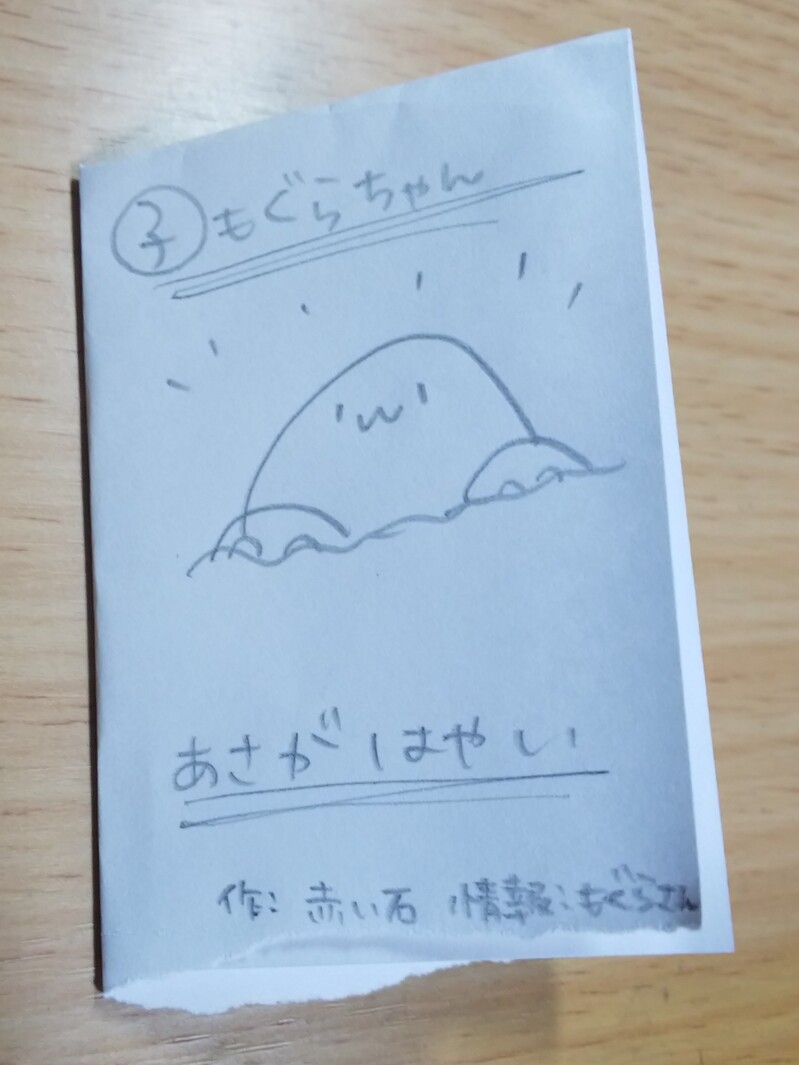 子 もぐらちゃん
あさがはやい
作: 赤い石 情報: もぐらさん